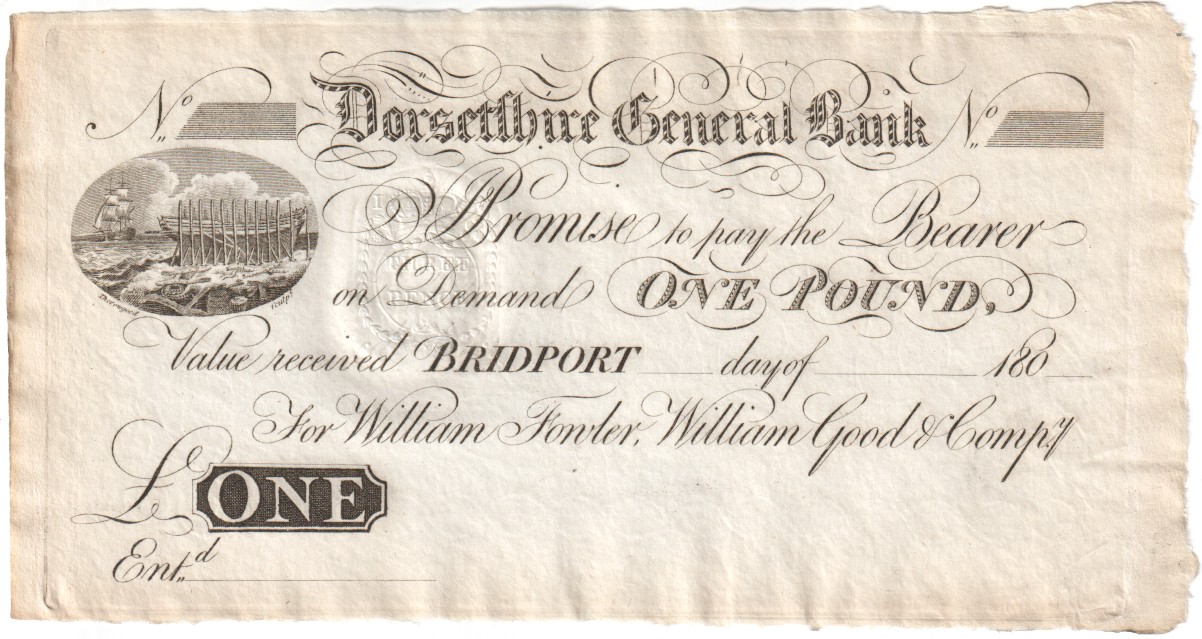 No Dorsetshire General Bank No
I Promise to pay the Bearer
on Demand ONE POUND,
Value received BRIDPORT day of 180
For William Fowler, William Good & Compy
£ ONE
Entd
sculpt
PENCE